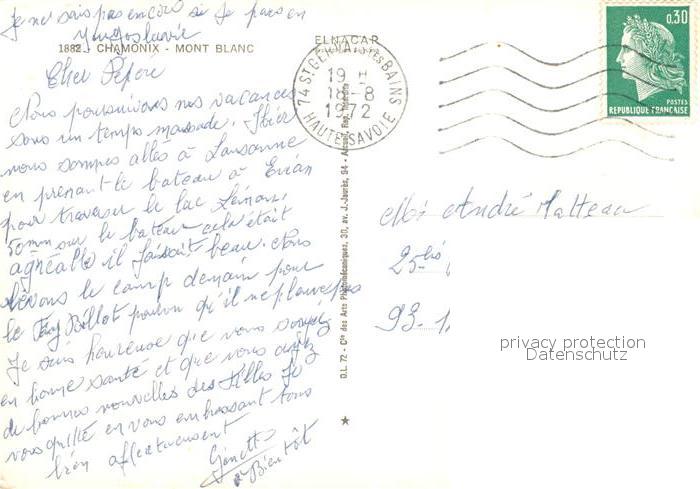 Je ne sais pas encore si je pars en
Yougoslavie
1882. CHAMONIX - MONT BLANC
ELNACAR
Cher Pépère
Nous poursuivons nos vacances
sous un temps maussade. Hier
nous sommes allés à Lausanne
en prenant le bateau à Evian
pour traverser le lac Léman,
sur le bateau cela était
agréable il faisait beau. Nous
levons le camp demain pour
le Fay Billot pourvu qu'il ne pleuve pas
Je suis heureuse que vous soyez
en bonne santé et que vous ayez
de bonnes nouvelles des filles Je
vous quitte en vous embrassant tous
bien affectueusement
Ginette
à Bientôt
D.L. 72 - Cie des Arts Photomécaniques, 30, av. J.-Jaurès, 94 - Arcueil,
74 ST GERVAIS LES BAINS
19 H
18-8
1972
HAUTE SAVOIE
0,30
POSTES
REPUBLIQUE FRANÇAISE
André
25
93
privacy protection
Datenschutz